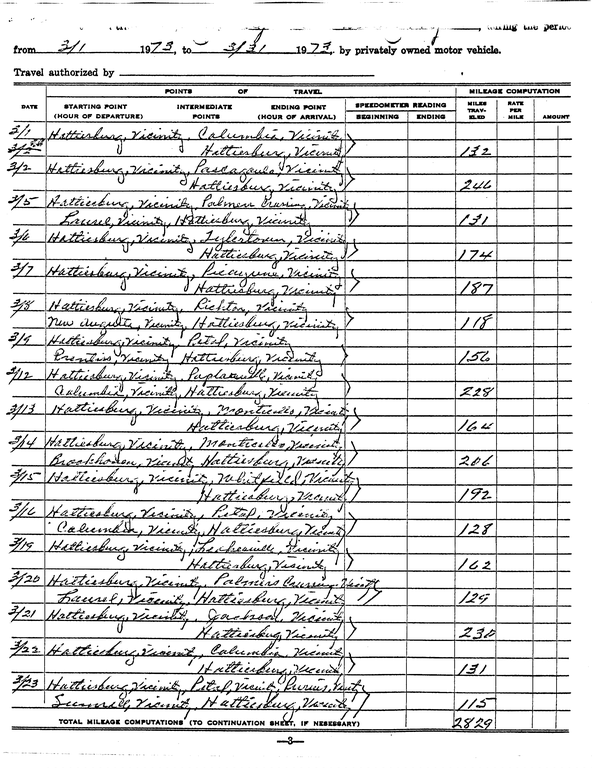 during the period
from 3/1 1973, to 3/31 1973, by privately owned motor vehicle.
Travel authorized by
POINTS OF TRAVEL MILEAGE COMPUTATION
DATE STARTING POINT (HOUR OF DEPARTURE) INTERMEDIATE POINTS ENDING POINT (HOUR OF ARRIVAL) SPEEDOMETER READING BEGINNING ENDING MILES TRAV-ELED RATE PER MILE AMOUNT
3/1 Hattiesburg, Vicinity, Columbia, Vicinity
Hattiesburg, Vicinity 132
3/2 Hattiesburg, Vicinity, Pascagoula, Vicinity
Hattiesburg, Vicinity 246
3/5 Hattiesburg, Vicinity, Palmers Crossing, Vicinity
Laurel, Vicinity, Hattiesburg, Vicinity 131
3/6 Hattiesburg, Vicinity, Tylertown, Vicinity
Hattiesburg, Vicinity 174
3/7 Hattiesburg, Vicinity, Picayune, Vicinity
Hattiesburg, Vicinity 187
3/8 Hattiesburg, Vicinity, Richton, Vicinity
New Augusta, Vicinity, Hattiesburg, Vicinity 118
3/9 Hattiesburg, Vicinity, Petal, Vicinity
Prentiss, Vicinity Hattiesburg, Vicinity 156
3/12 Hattiesburg, Vicinity, Poplarville, Vicinity
Columbia, Vicinity, Hattiesburg, Vicinity 228
3/13 Hattiesburg, Vicinity, Monticello, Vicinity
Hattiesburg, Vicinity 164
3/14 Hattiesburg, Vicinity, Monticello, Vicinity
Brookhaven, Vicinity Hattiesburg, Vicinity 206
3/15 Hattiesburg, Vicinity, Whitfield, Vicinity
Hattiesburg, Vicinity 192
3/16 Hattiesburg, Vicinity, Petal, Vicinity
Columbia, Vicinity, Hattiesburg, Vicinity 128
3/19 Hattiesburg Vicinity, Vicinity
Hattiesburg, Vicinity 162
3/20 Hattiesburg, Vicinity, Palmers Crossing Vicinity
Laurel, Vicinity, Hattiesburg, Vicinity 129
3/21 Hattiesburg, Vicinity, Jackson, Vicinity
Hattiesburg Vicinity 230
3/22 Hattiesburg, Vicinity, Columbia Vicinity
Hattiesburg, Vicinity 131
3/23 Hattiesburg, Vicinity, Petal, Vicinity, Purvis, Vicinity
Sumrall, Vicinity, Hattiesburg, Vicinity 115
TOTAL MILEAGE COMPUTATIONS (TO CONTINUATION SHEET, IF NESESSARY) 2829
—3—